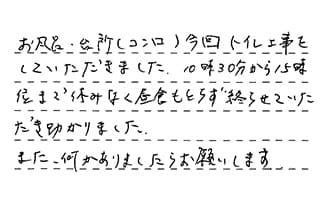 お風呂・台所(コンロ)今回トイレ工事を
していただきました。10時30分から15時
位まで休みなく昼食もとらず終らせていた
だき助かりました。
また、何かありましたらお願いします